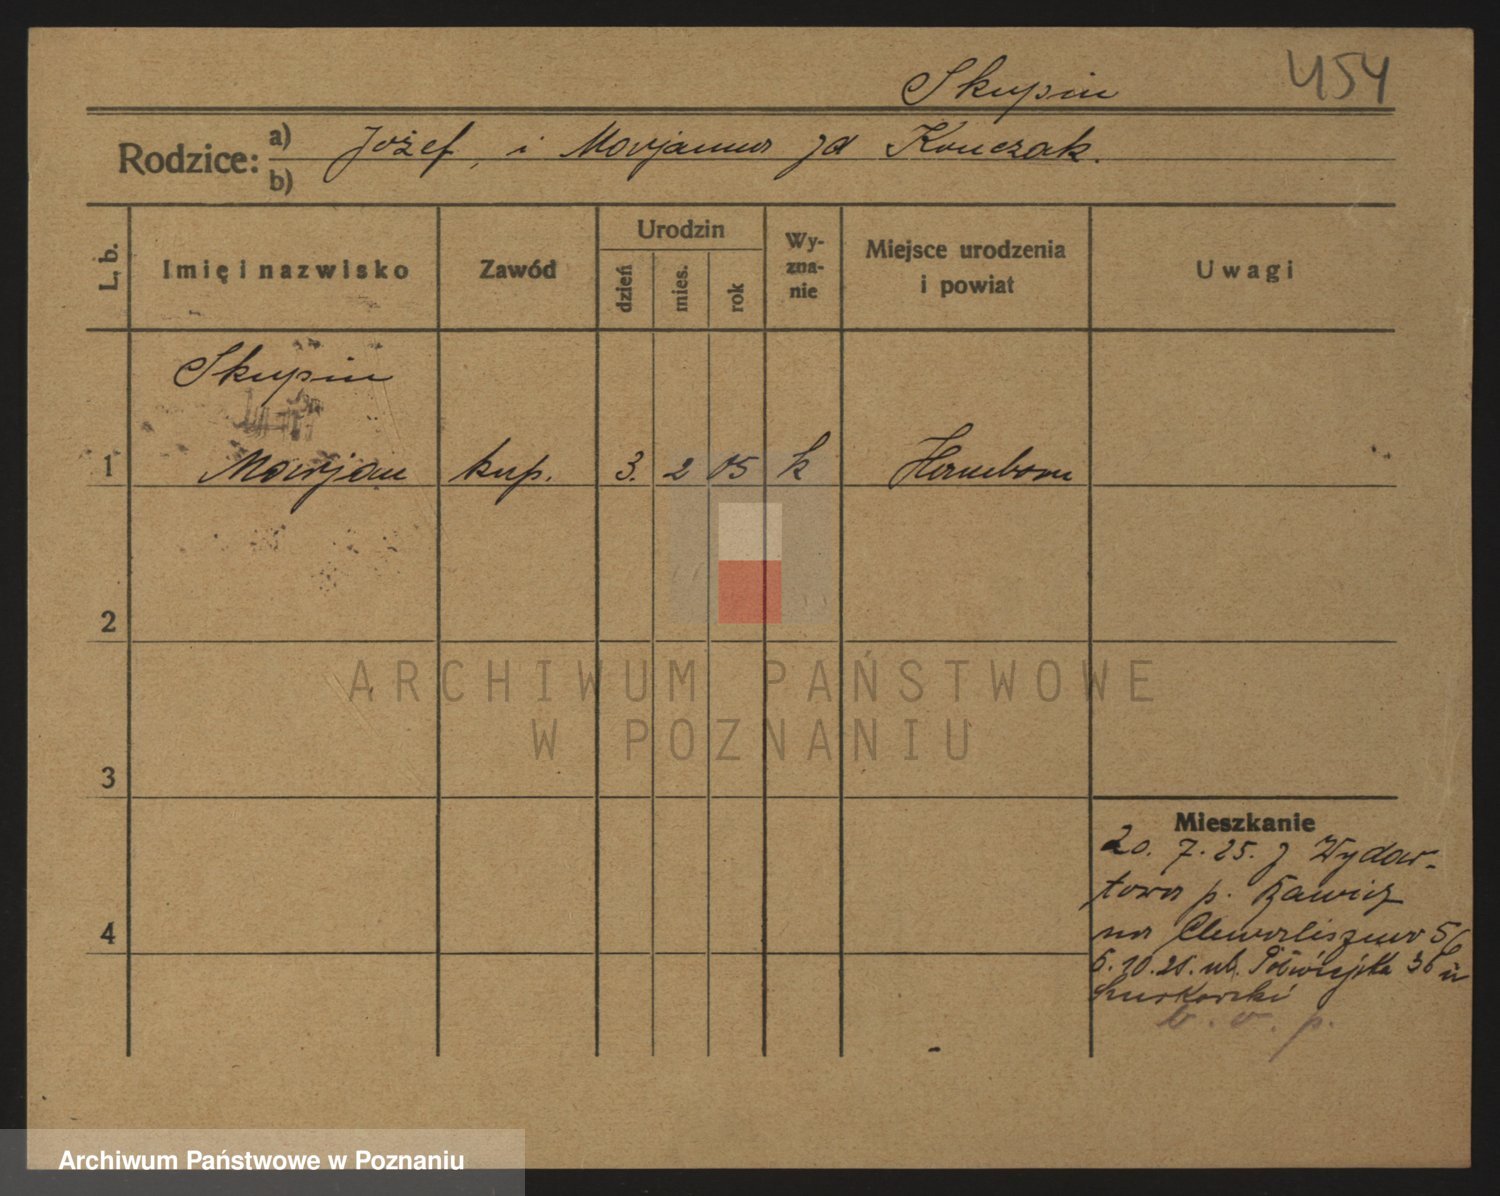 Skupin
454
Rodzice: a) Józef, i Marjanna zd Konczak.
b)
L. b.
Imię i nazwisko
Zawód
Urodzin
dzień
mies.
rok
Wy-
zna-
nie
Miejsce urodzenia
i powiat
Uwagi
Skupin
1 Marjan kup. 3. 2 05 k Hamborn
2
3
4
Mieszkanie
20. 7. 25. z Wydaw-
towa p. Rawicz
na Chwaliszewo 56
6. 10. 25. ul. Półwiejska 36 u
b. o. p.
ARCHIWUM PAŃSTWOWE
W POZNANIU
Archiwum Państwowe w Poznaniu